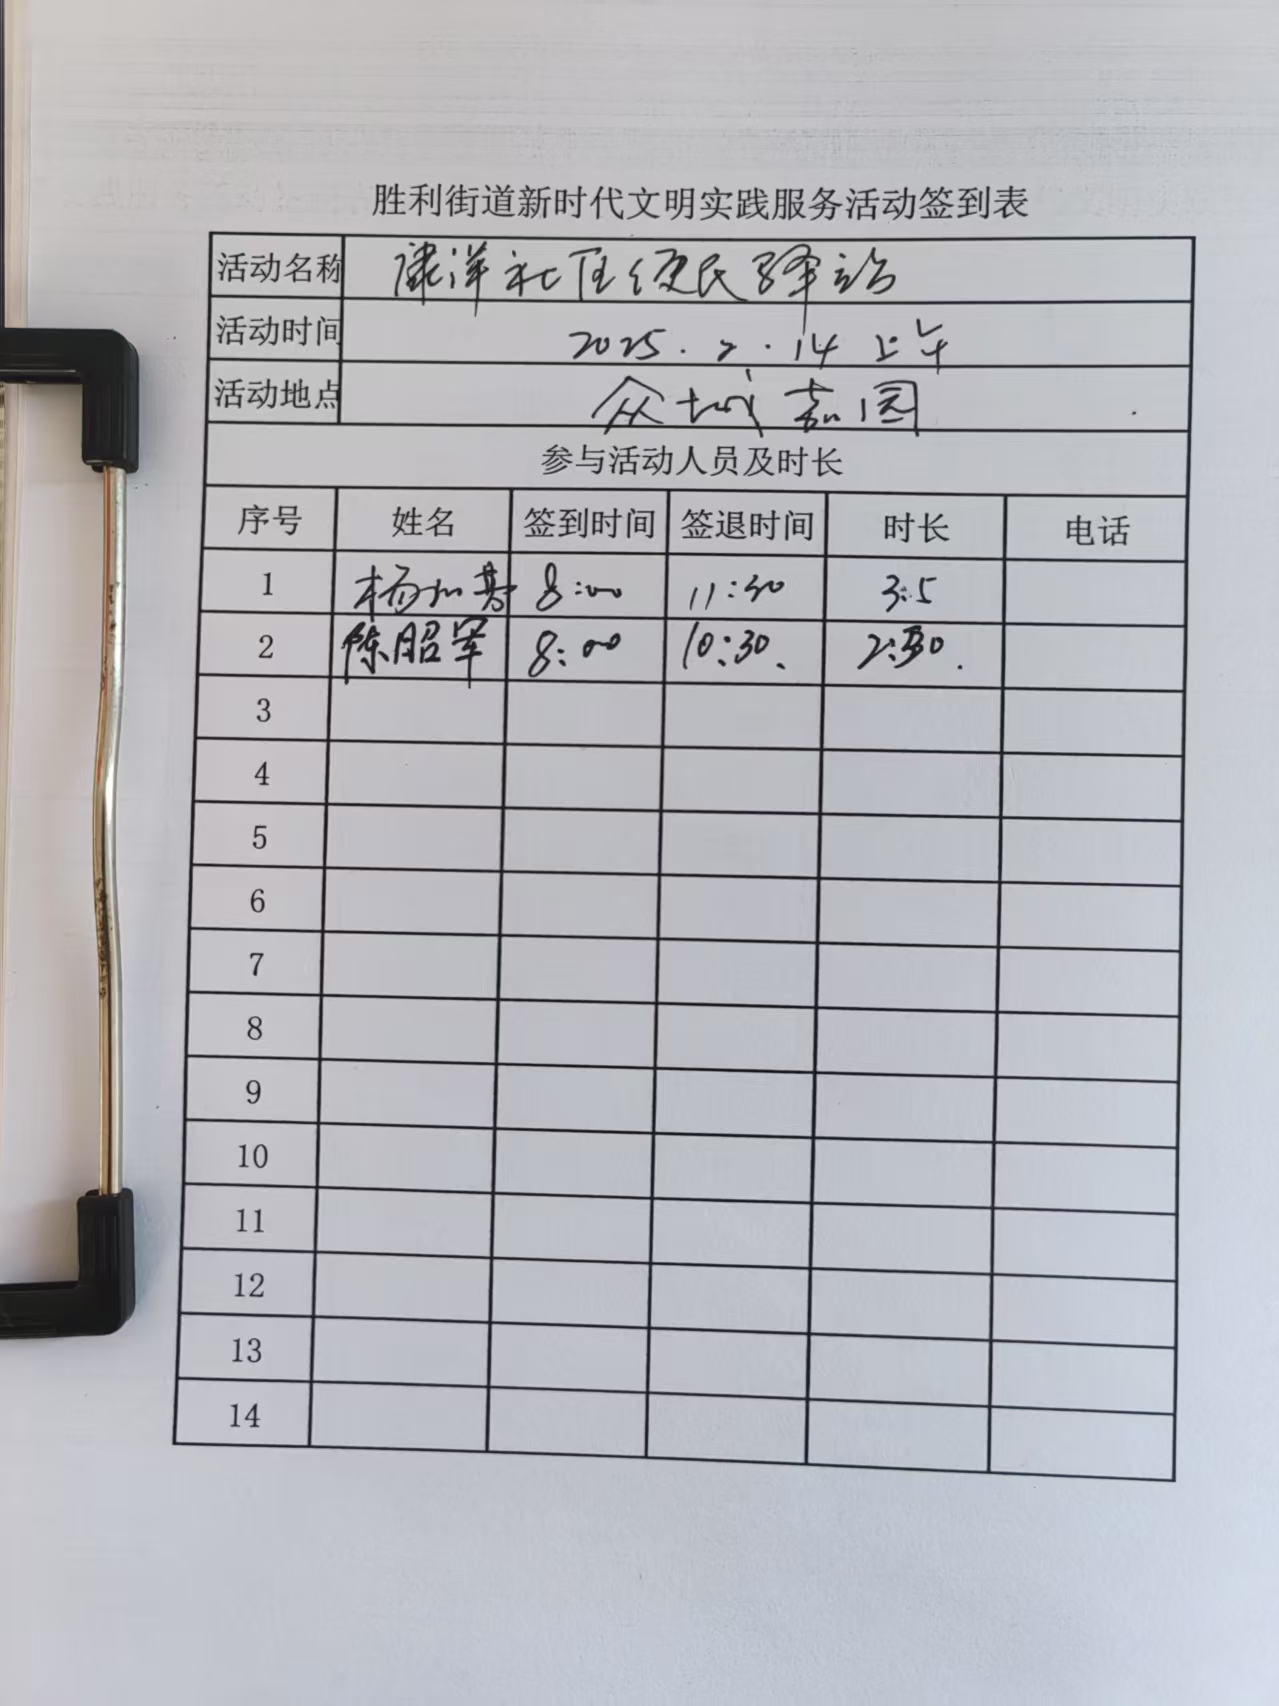 胜利街道新时代文明实践服务活动签到表
活动名称 康洋社区便民驿站
活动时间 2025.2.14 上午
活动地点 众城嘉园
参与活动人员及时长
序号 姓名 签到时间 签退时间 时长 电话
1 杨 8:00 11:30 3.5
2 陈昭军 8:00 10:30 2:30
3
4
5
6
7
8
9
10
11
12
13
14